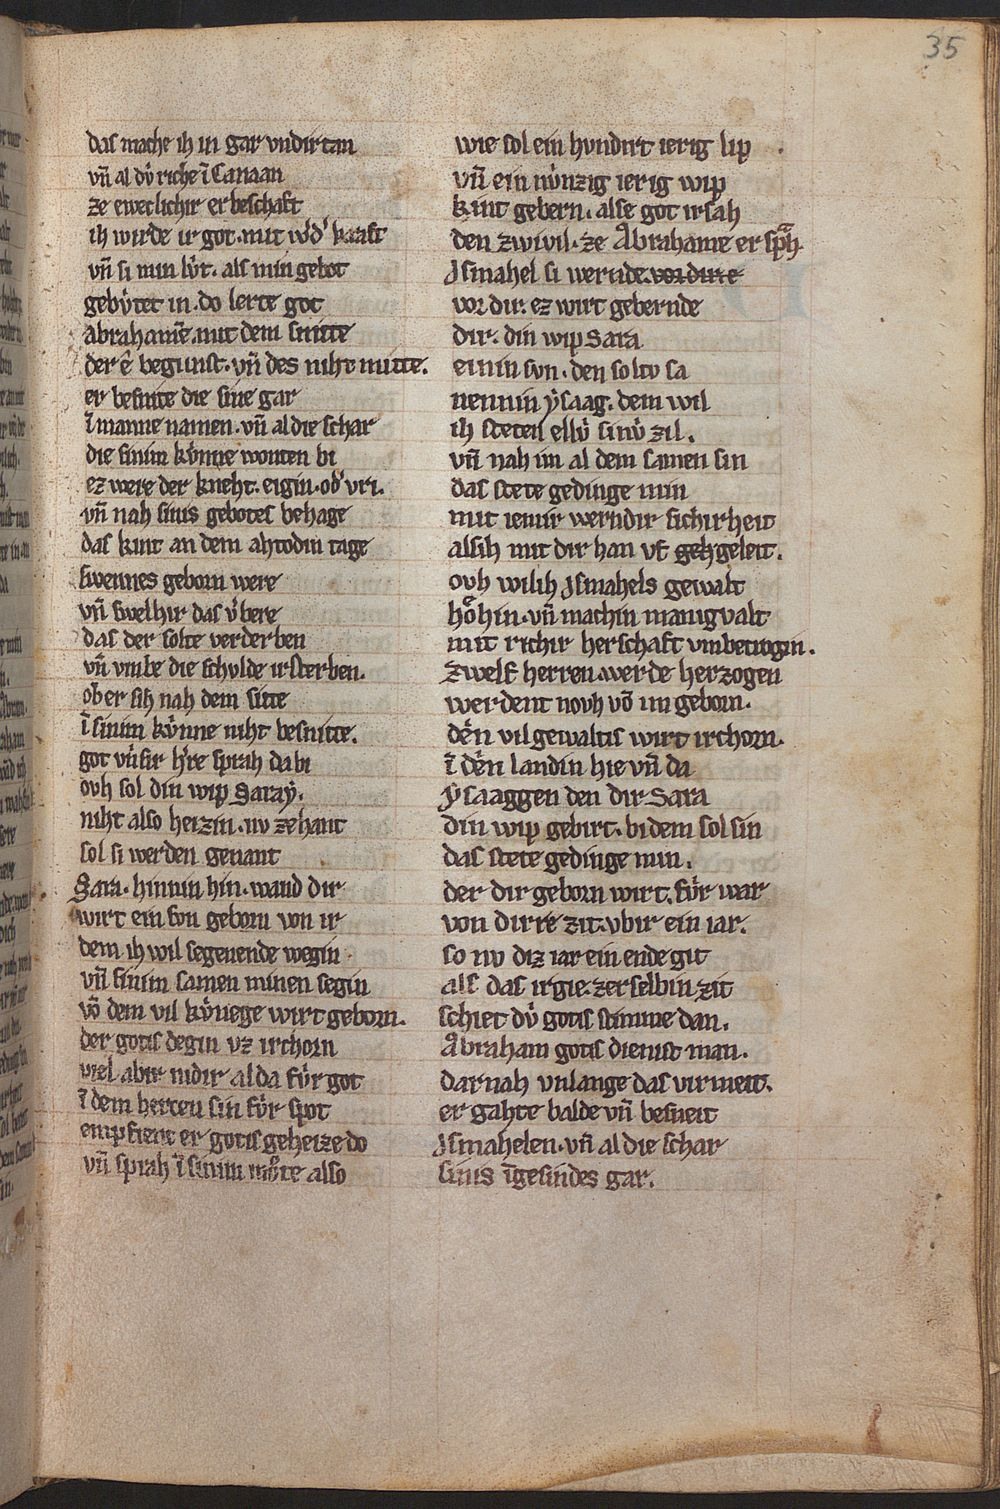 35
das mache ih in gar vndirtan
vn̄ al dv̍ riche ī Canaan
ze eweclichir erbeschaft
ih wirde ir got. mit kraft
vn̄ si min lv̍t. als min gebot
gebv̍tet in. do lerte got
abrahamē. mit dem snitte
der ê begunst. vn̄ des niht mitte.
er besnite die sine gar
ī manne namen. vn̄ al die schar
die sinim kv̍nne wonten bi
ez were der kneht. eigin. odˀ vri.
vn̄ nah sinis gebotes behage
das kint an dem ahtodin tage
swennes geborn were
vn̄ swelhir das vˀbere
das der solte verderben
vn̄ vmbe die schvlde irsterben.
ob er sih nah dem sitte
ī sinim kv̍nne niht besnitte.
got vnsir hˀre sprah da bi
ovh sol din wip Saraẏ.
niht also heizin. nv zehant
sol si werden genant
Sara. hinnin hin. wand dir
wirt ein svn geborn von ir
dem ih wil segenende wegin
vn̄ sinim samen minen segin
vō dem vil kv̍nege wirt geborn.
der gotis degin vz irchorn
viel abir nidir al da fv̍r got
ī dem hercen sin fv̍r spot
empfient er gotis geheize do
vn̄ sprah ī sinim mv̊te also
wie sol ein hvndirt ierig lip
vn̄ ein nv̍nzig ierig wip
kint gebern. alse got irsah
den zwivil. ze Abrahame er spͣh.
Jsmahel si wernde. vor dir e
vor dir. ez wirt gebernde
dir. din wip Sara
einin svn. den soltv sa
nennin ẏsaag. dem wil
ih steten ellv̍ sinv̍ zil.
vn̄ nah im al dem samen sin
das stete gedinge min
mit iemir werndir sichirheit
alsih mit dir han vf geh geleit.
ovh wil ih Jsmahels gewalt
hôhin. vn̄ machin manigvalt
mit richir herschaft vnbetrogin.
zwelf herren. werde herzogen
werdent novh vō im geborn.
dên vil gewaltis wirt irchorn.
ī dên landin hie vn̄ da
ẏsaaggen den dir Sara
din wip gebirt. bi dem sol sin
das stete gedinge min.
der dir geborn wirt. fv̍r war
von dirre zit. vbir ein iar.
so nv diz iar ein ende git
als das irgie. zer selbin zit
schiet dv̍ gotis stimme dan.
Abraham gotis dienist man.
darnah vnlange das virmeit.
er gahte balde vn̄ besneit
Jsmahelen. vn̄ al die schar
sinis īgesindes gar.